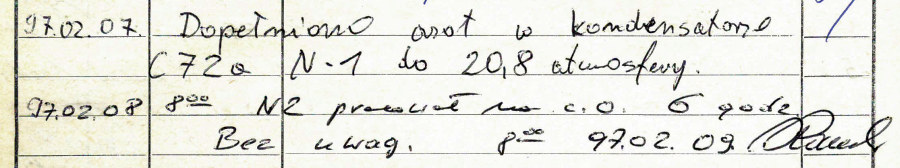 97.02.07. Dopełniono azot w kondensatorze
C72a N-1 do 20,8 atmosfery.
97.02.08 8⁰⁰ N2 pracował na c.o. 6 godz
Bez uwag. 8⁰⁰ 97.02.09.